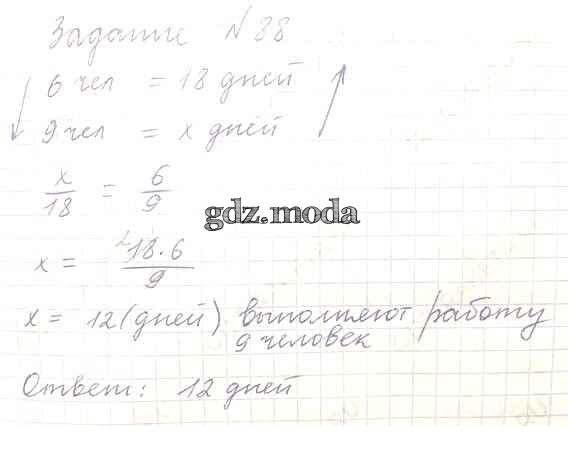 Задание №88
6 чел = 18 дней
9 чел = x дней
x/18 = 6/9
gdz.moda
x = 18·6/9
x = 12 (дней) выполняют работу
9 человек
Ответ: 12 дней